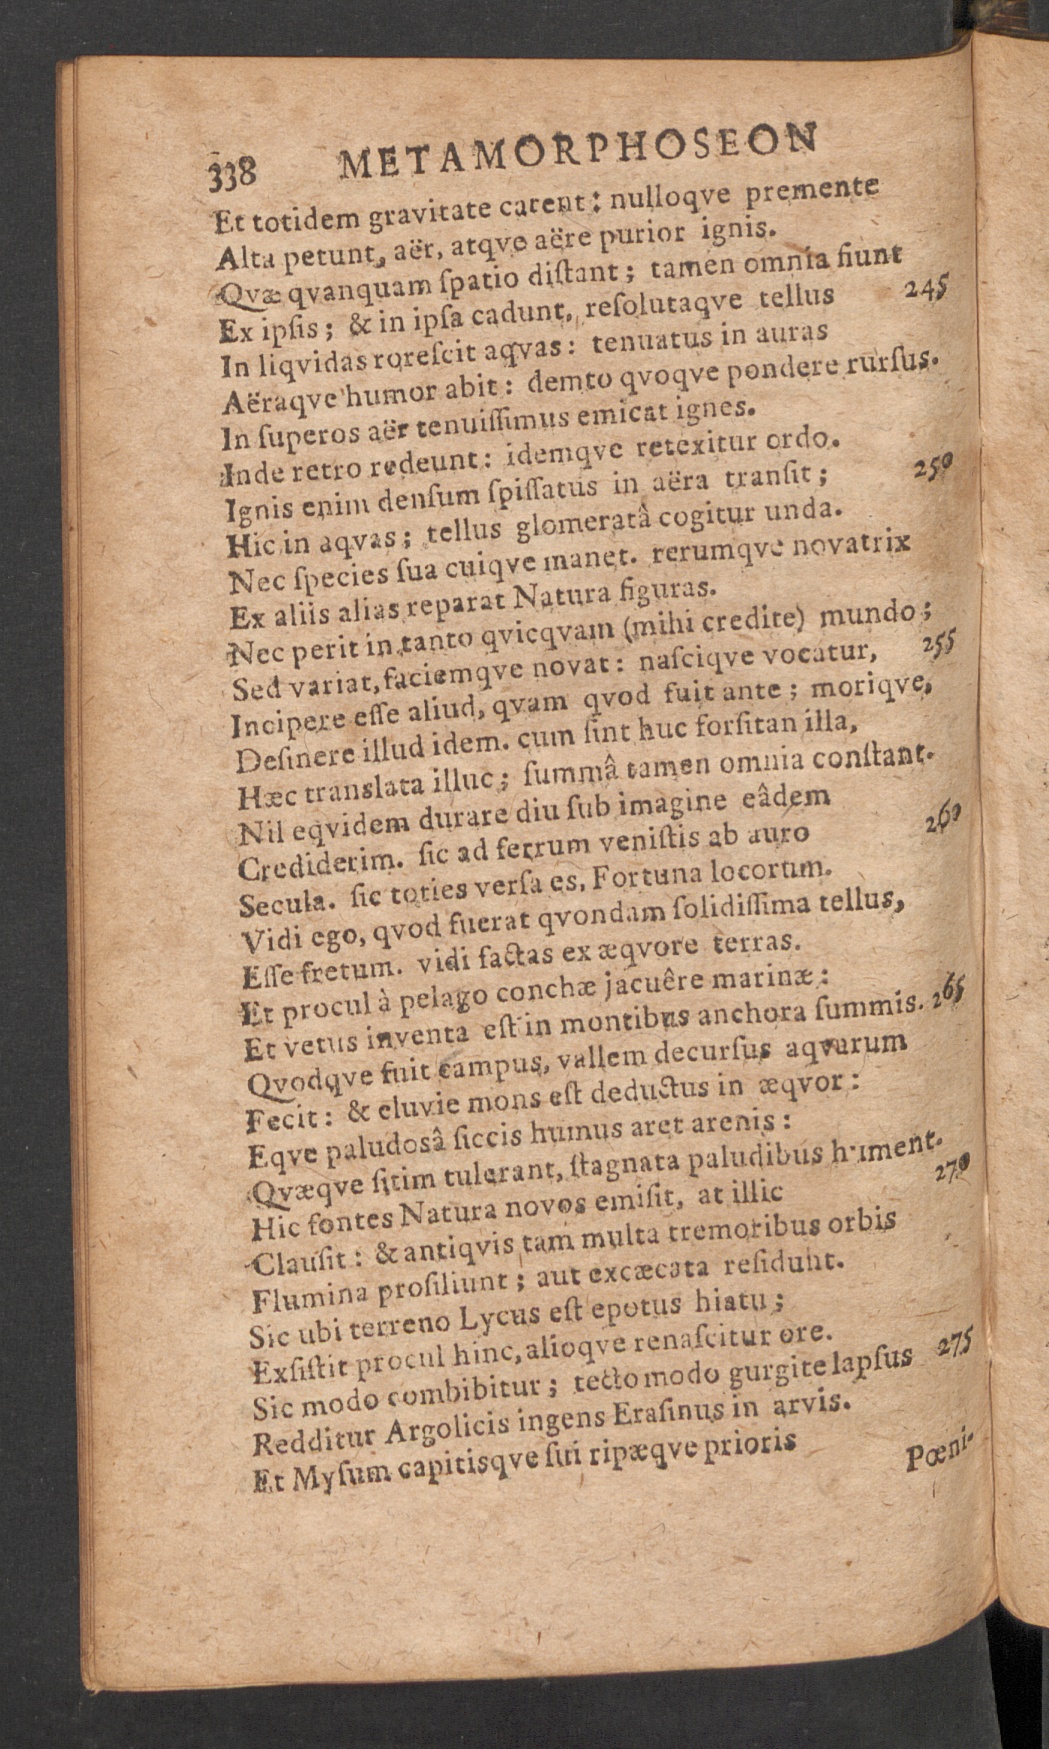 338 METAMORPHOSEON
Et totidem gravitate carent: nulloqve premente
Alta petunt, aër, atqve aëre purior ignis.
Qvæ qvanquam ſpatio diſtant; tamen omnia fiunt
Ex ipſis; & in ipſa cadunt, reſolutaqve tellus 245
In liqvidas roreſcit aqvas: tenuatus in auras
Aëraqve humor abit: demto qvoqve pondere rurſus.
In ſuperos aër tenuiſſimus emicat ignes.
Inde retro redeunt: idemqve retexitur ordo.
Ignis enim denſum ſpiſſatus in aëra tranſit; 250
Hic in aqvas; tellus glomeratâ cogitur unda.
Nec ſpecies ſua cuiqve manet. rerumqve novatrix
Ex aliis alias reparat Natura figuras.
Nec perit in tanto qvicqvam (mihi credite) mundo;
Sed variat, faciemqve novat: naſciqve vocatur, 255
Incipere eſſe aliud, qvam qvod fuit ante; moriqve,
Deſinere illud idem. cum ſint huc forſitan illa,
Hæc translata illuc; ſummâ tamen omnia conſtant.
Nil eqvidem durare diu ſub imagine eâdem
Crediderim. ſic ad ferrum veniſtis ab auro 260
Secula. ſic toties verſa es, Fortuna locorum.
Vidi ego, qvod fuerat qvondam ſolidiſſima tellus,
Eſſe fretum. vidi factas ex æqvore terras.
Et procul à pelago conchæ jacuêre marinæ:
Et vetus inventa eſt in montibus anchora ſummis. 265
Qvodqve fuit campus, vallem decurſus aqvarum
Fecit: & eluvie mons eſt deductus in æqvor:
Eqve paludosâ ſiccis humus aret arenis:
Qvæqve ſitim tulerant, ſtagnata paludibus hument.
Hic fontes Natura novos emiſit, at illic 270
Clauſit: & antiqvis tam multa tremoribus orbis
Flumina proſiliunt; aut excæcata reſidunt.
Sic ubi terreno Lycus eſt epotus hiatu;
Exſiſtit procul hinc, alioqve renaſcitur ore.
Sic modo combibitur; tecto modo gurgite lapſus 275
Redditur Argolicis ingens Eraſinus in arvis.
Et Myſum capitisqve ſui ripæqve prioris
Pœni-